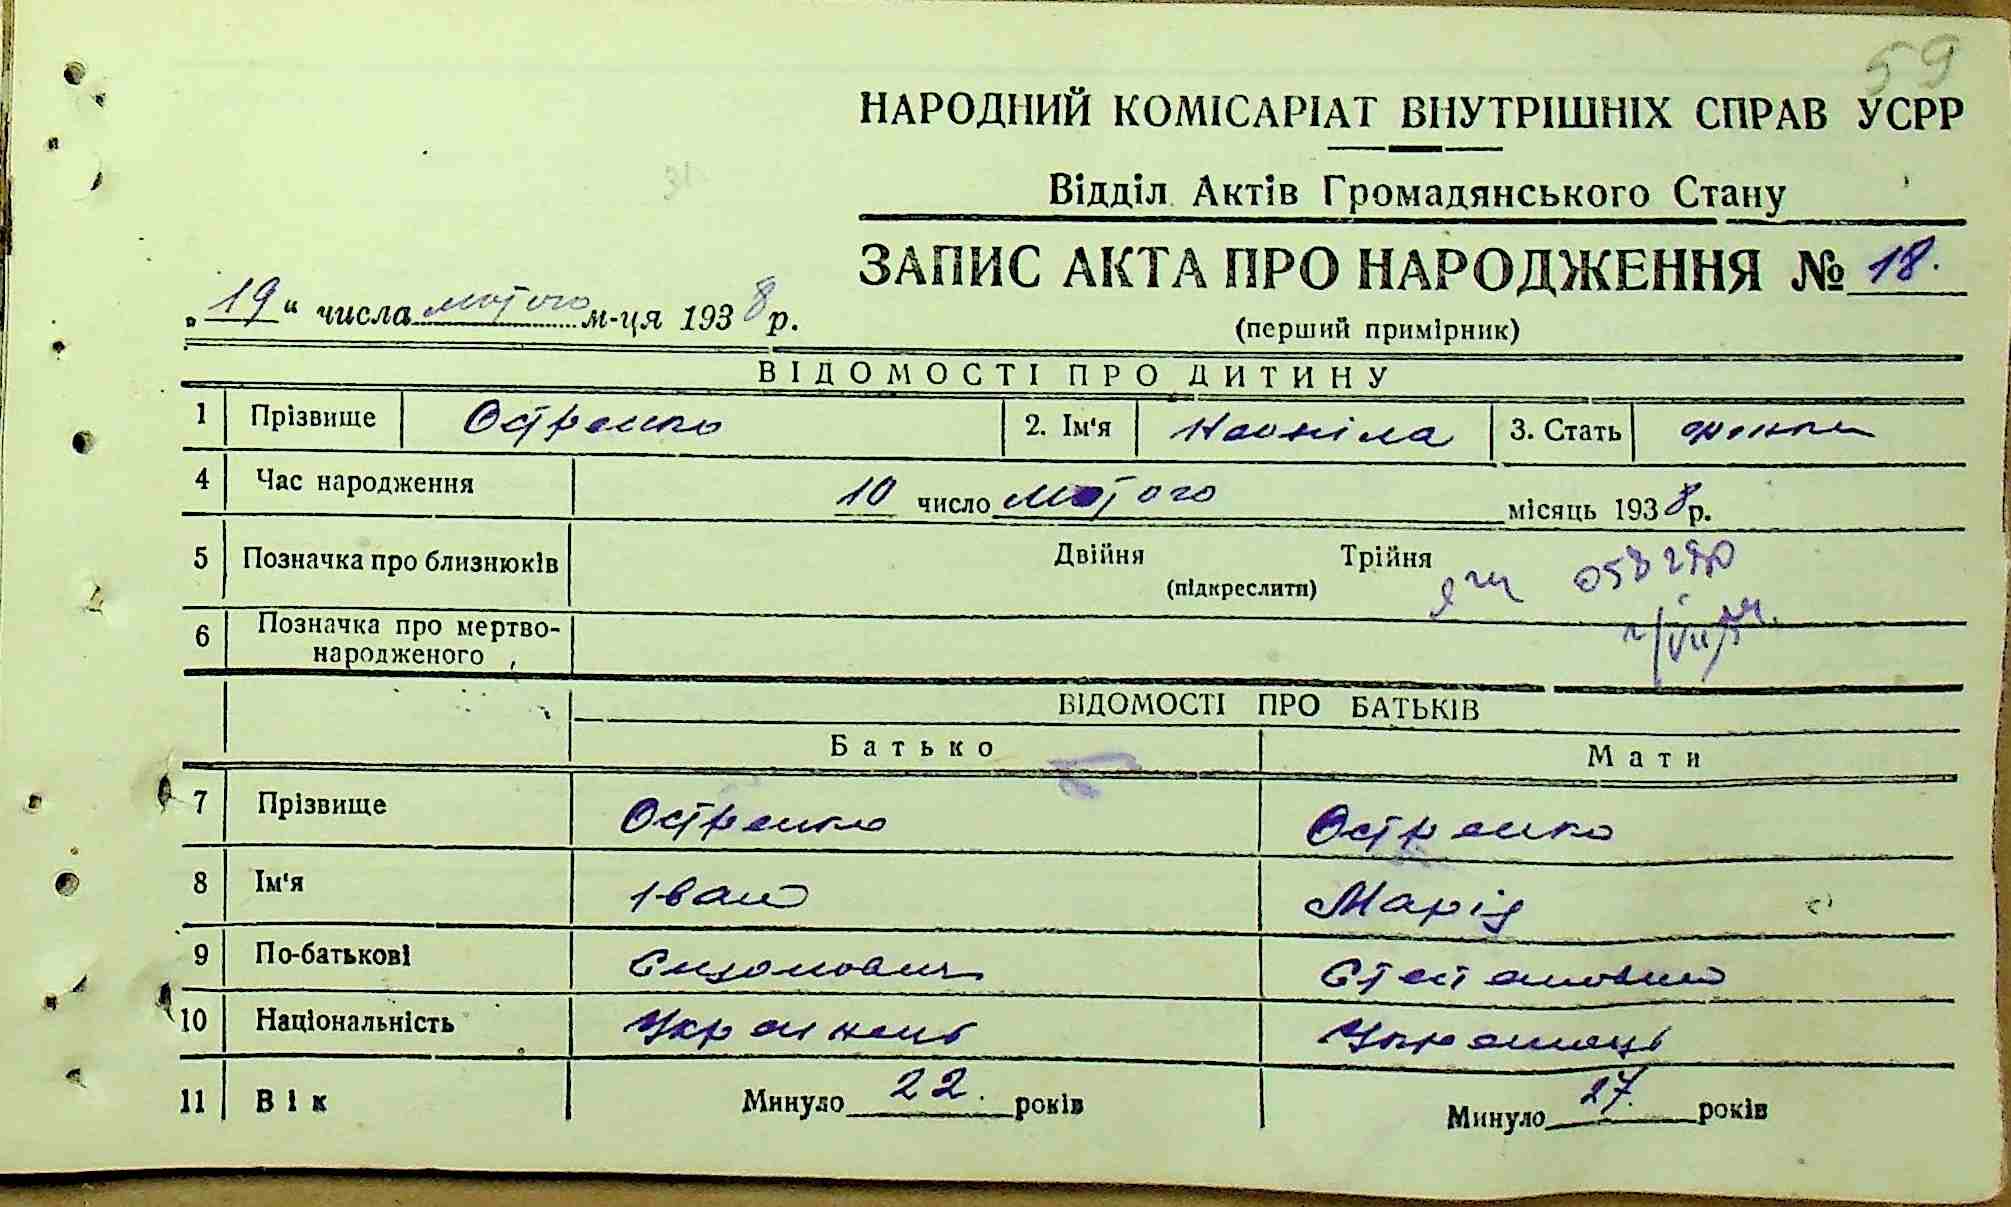 59
НАРОДНИЙ КОМІСАРІАТ ВНУТРІШНІХ СПРАВ УСРР
31
Відділ Актів Громадянського Стану
ЗАПИС АКТА ПРО НАРОДЖЕННЯ № 18.
„19“ числа лютого м-ця 1938 р.
(перший примірник)
ВІДОМОСТІ ПРО ДИТИНУ
1 Прізвище 2. Ім'я 3. Стать
4 Час народження 10 число лютого місяць 1938 р.
5 Позначка про близнюків Двійня Трійня
(підкреслити)
6 Позначка про мертво-
народженого
ВІДОМОСТІ ПРО БАТЬКІВ
Батько Мати
7 Прізвище
8 Ім'я Іван Марія
9 По-батькові Степановна
10 Національність Українець Українець
11 Вік Минуло 22. років Минуло 27. років